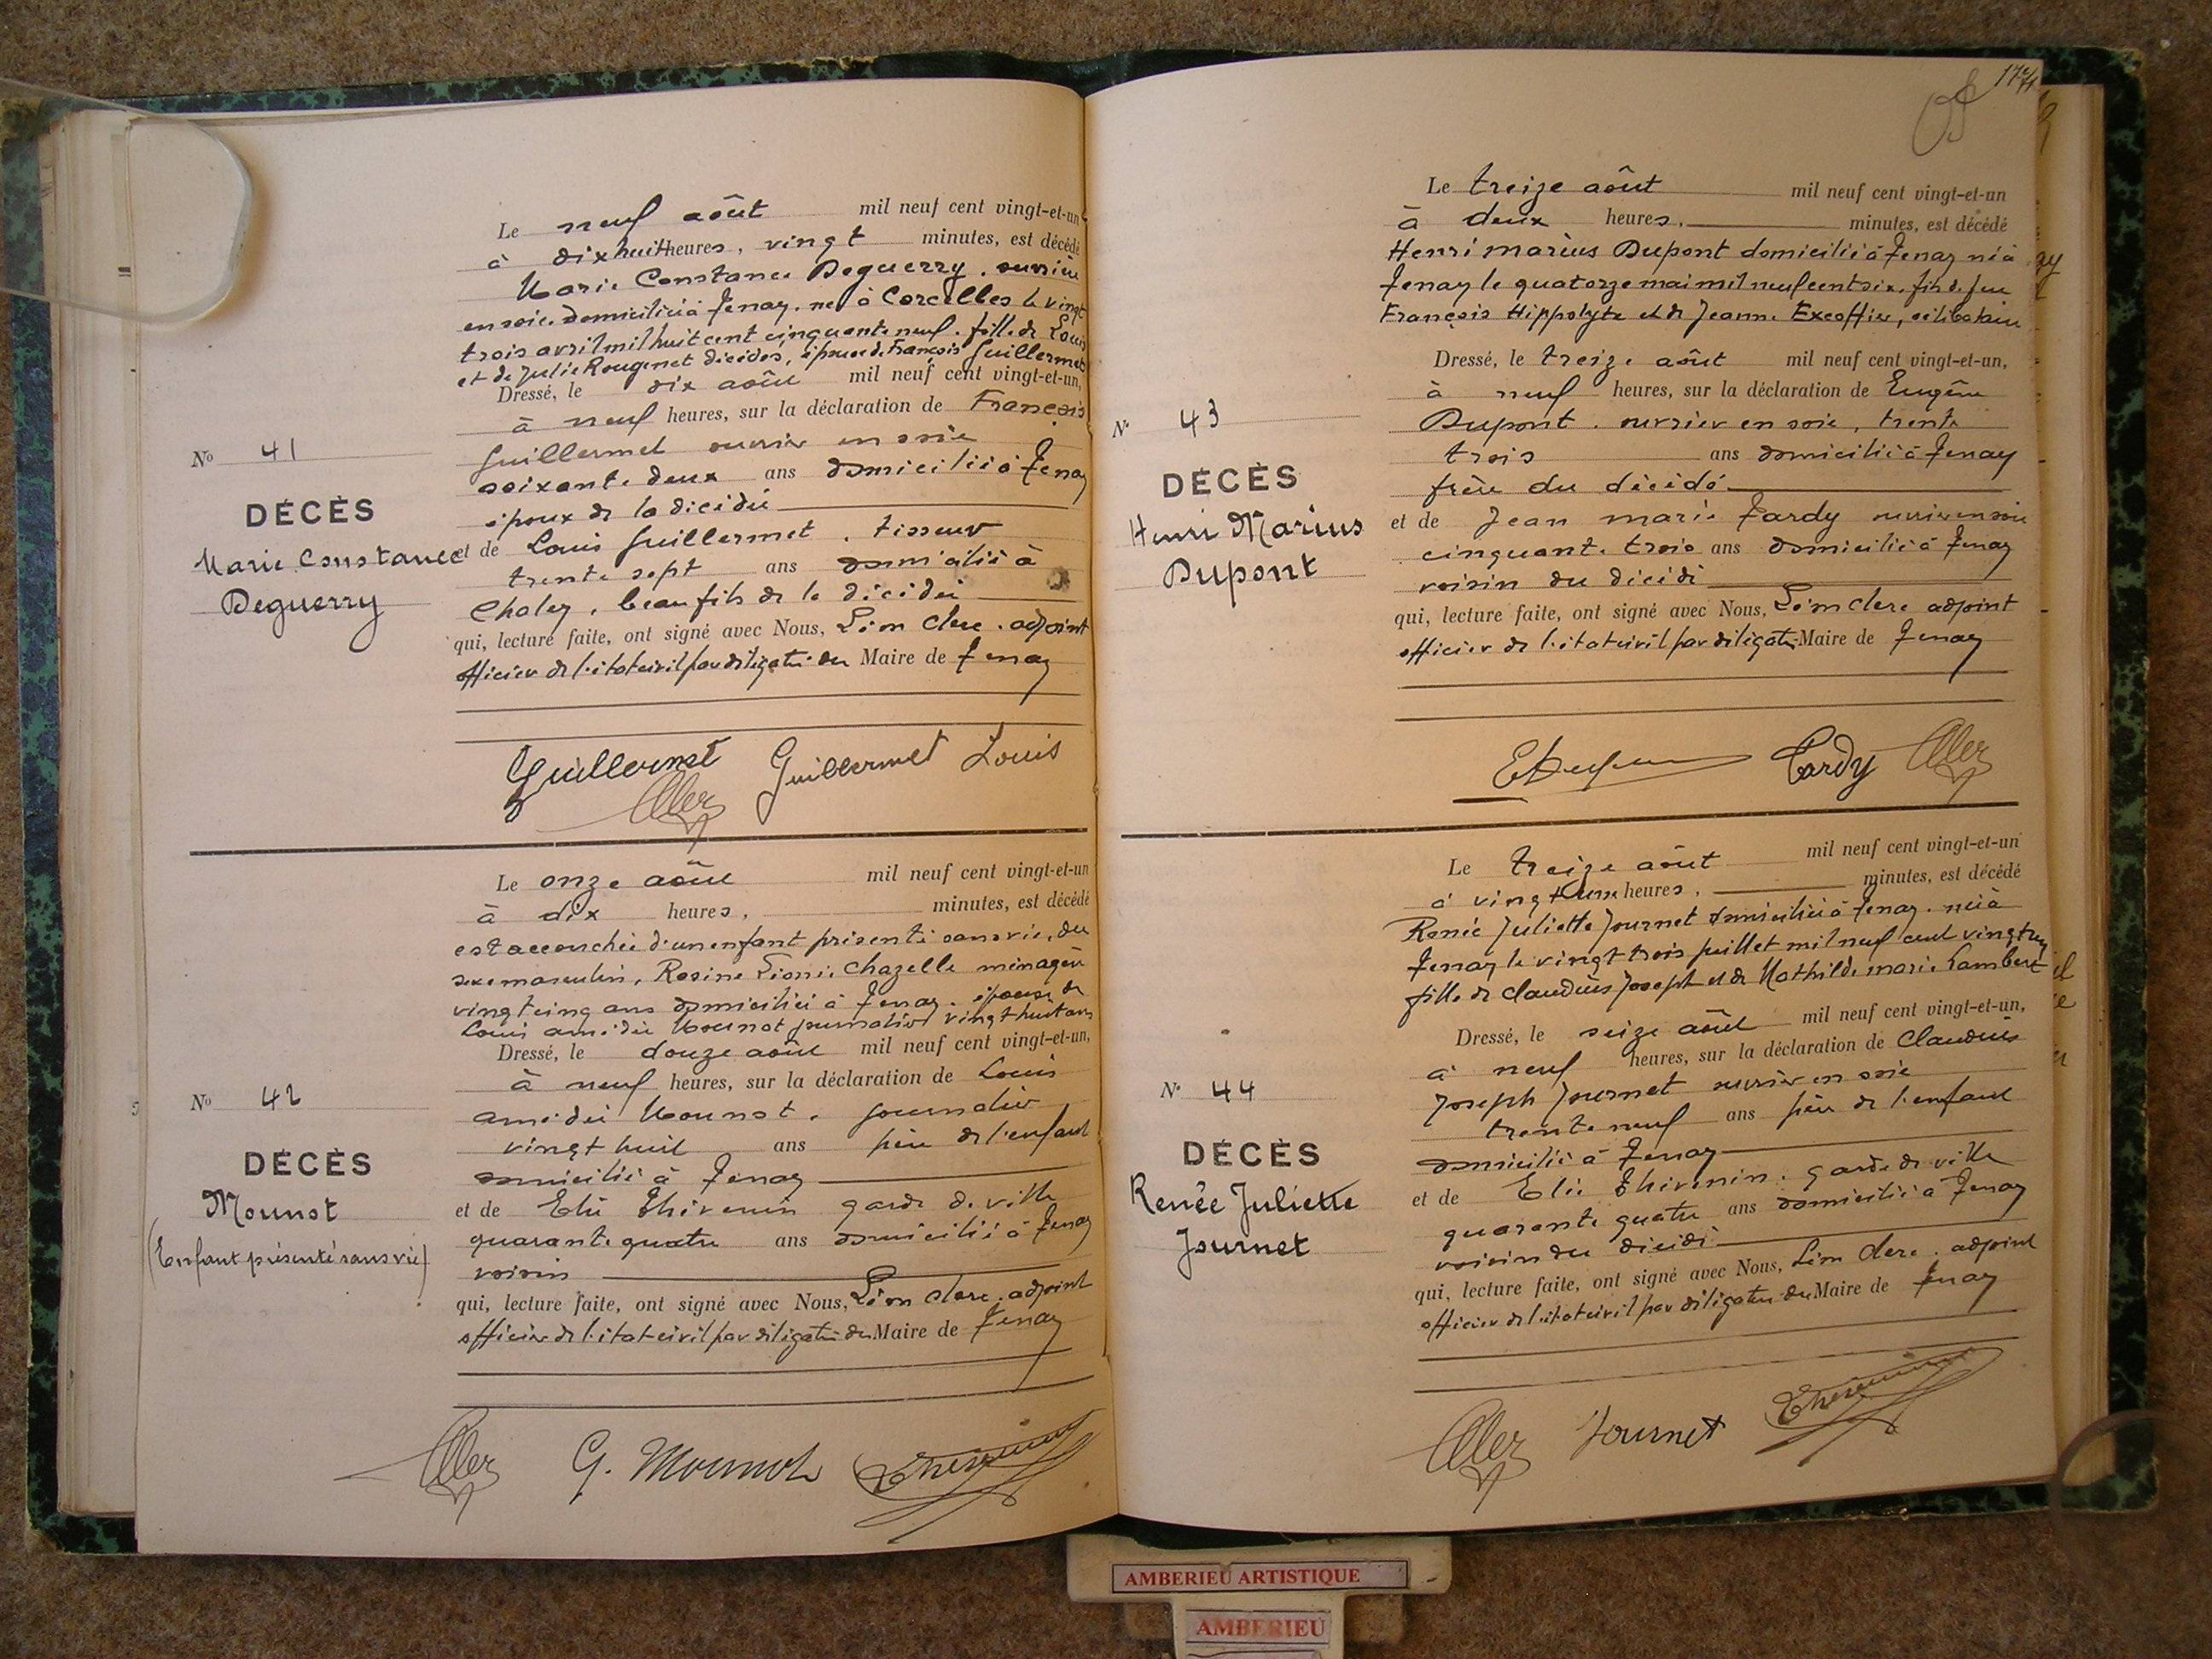 Le neuf août mil neuf cent vingt-et-un
à dix huit heures, vingt minutes, est décédé
Marie Constance Deguerry. ouvrière
en soie. domiciliée à Tenay. née à Corcelles le vingt
trois avril mil huit cent cinquante neuf. fille de Louis
et de Julie Rougemet décédés, épouse de François Guillermet
Dressé, le dix août mil neuf cent vingt-et-un,
à neuf heures, sur la déclaration de François
Guillermet ouvrier en soie
soixante deux ans domicilié à Tenay
époux de la décédée
et de Louis Guillermet. tisseur
trente sept ans domicilié à
Chaley, beau fils de la décédée
qui, lecture faite, ont signé avec Nous, Léon Clerc. adjoint
officier de l'état civil par délégation du Maire de Tenay
No 41
DÉCÈS
Marie Constance
Deguerry
Guillermet Guillermet Louis
Le onze août mil neuf cent vingt-et-un
à dix heures, minutes, est décédé
est accouchée d'un enfant présenté sans vie, du
sexe masculin, Rosine Léonie Chazelle ménagère
vingt cinq ans domiciliée à Tenay. épouse de
Louis amédée Mounot journalier vingt huit ans
Dressé, le douze août mil neuf cent vingt-et-un,
à neuf heures, sur la déclaration de Louis
amédée Mounot. journalier
vingt huit ans père de l'enfant
domicilié à Tenay
et de Elie Thivenin garde de ville
quarante quatre ans domicilié à Tenay
voisin
qui, lecture faite, ont signé avec Nous, Léon Clerc. adjoint
officier de l'état civil par délégation du Maire de Tenay
No 42
DÉCÈS
Mounot
(Enfant présenté sans vie)
G. Mounot Thevenin
Le treize août mil neuf cent vingt-et-un
à deux heures, minutes, est décédé
Henri marius Dupont domicilié à Tenay né à
Tenay le quatorze mai mil neuf cent six. fils de feu
François Hippolyte et de Jeanne Excoffier, célibataire
Dressé, le treize août mil neuf cent vingt-et-un,
à neuf heures, sur la déclaration de Eugène
Dupont. ouvrier en soie, trente
trois ans domicilié à Tenay
frère du décédé
et de Jean marie Tardy ouvrier en soie
cinquante trois ans domicilié à Tenay
voisin du décédé
qui, lecture faite, ont signé avec Nous, Léon Clerc adjoint
officier de l'état civil par délégatn Maire de Tenay
N° 43
DÉCÈS
Henri Marius
Dupont
Tardy
Le treize août mil neuf cent vingt-et-un
à vingt une heures, minutes, est décédé
Renée Juliette Journet domiciliée à Tenay. née à
Tenay le vingt trois juillet mil neuf cent vingt un
fille de claudius Joseph et de Mathilde marie Lambert
Dressé, le seize août mil neuf cent vingt-et-un,
à neuf heures, sur la déclaration de Claudius
Joseph Journet ouvrier en soie
trente neuf ans père de l'enfant
domicilié à Tenay
et de Elie Thivenin. garde de ville
quarante quatre ans domicilié à Tenay
voisin du décédé
qui, lecture faite, ont signé avec Nous, Léon Clerc. adjoint
officier de l'état civil par délégation du Maire de Tenay
N° 44
DÉCÈS
Renée Juliette
Journet
Journet Thevenin
AMBERIEU ARTISTIQUE
AMBERIEU